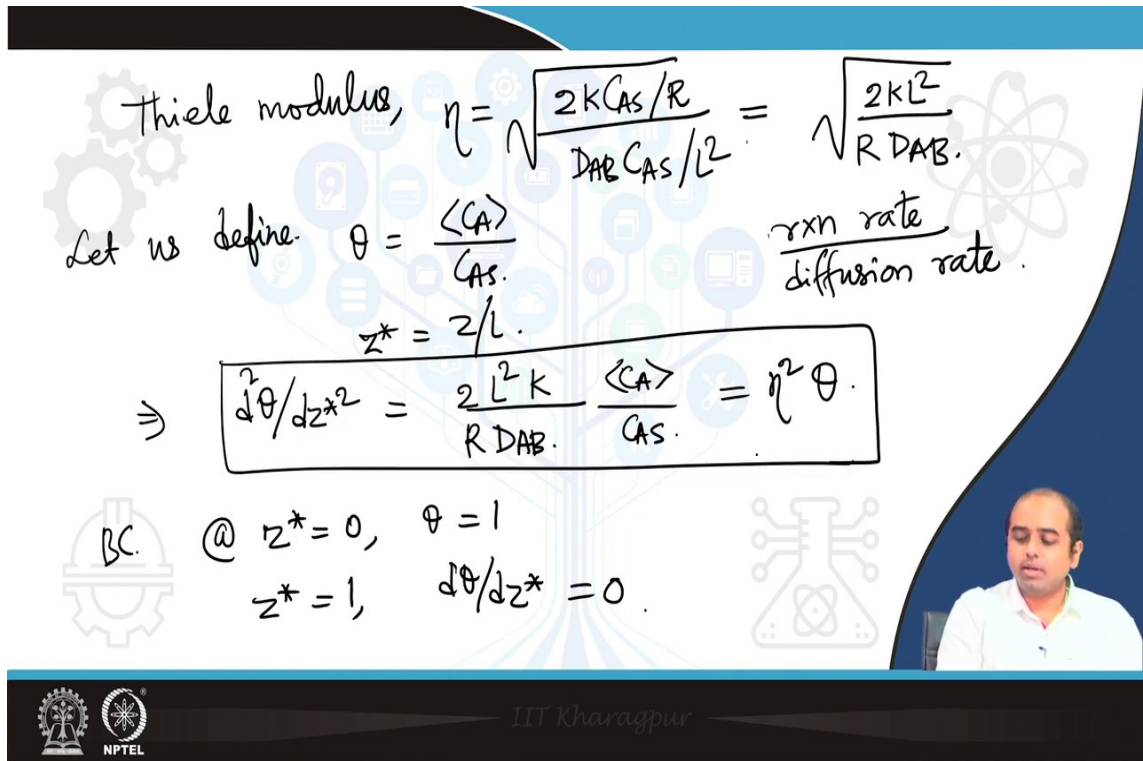 Thiele modulus, η = √(2KCAS/R / DABCAS/L²) = √(2KL² / RDAB.)
Let us define. θ = <CA> / CAS. rxn rate / diffusion rate.
z* = z/L.
⇒ d²θ/dz*² = 2L²K / RDAB. <CA> / CAS. = η²θ.
BC. @ z* = 0, θ = 1
z* = 1, dθ/dz* = 0.
IIT Kharagpur
NPTEL